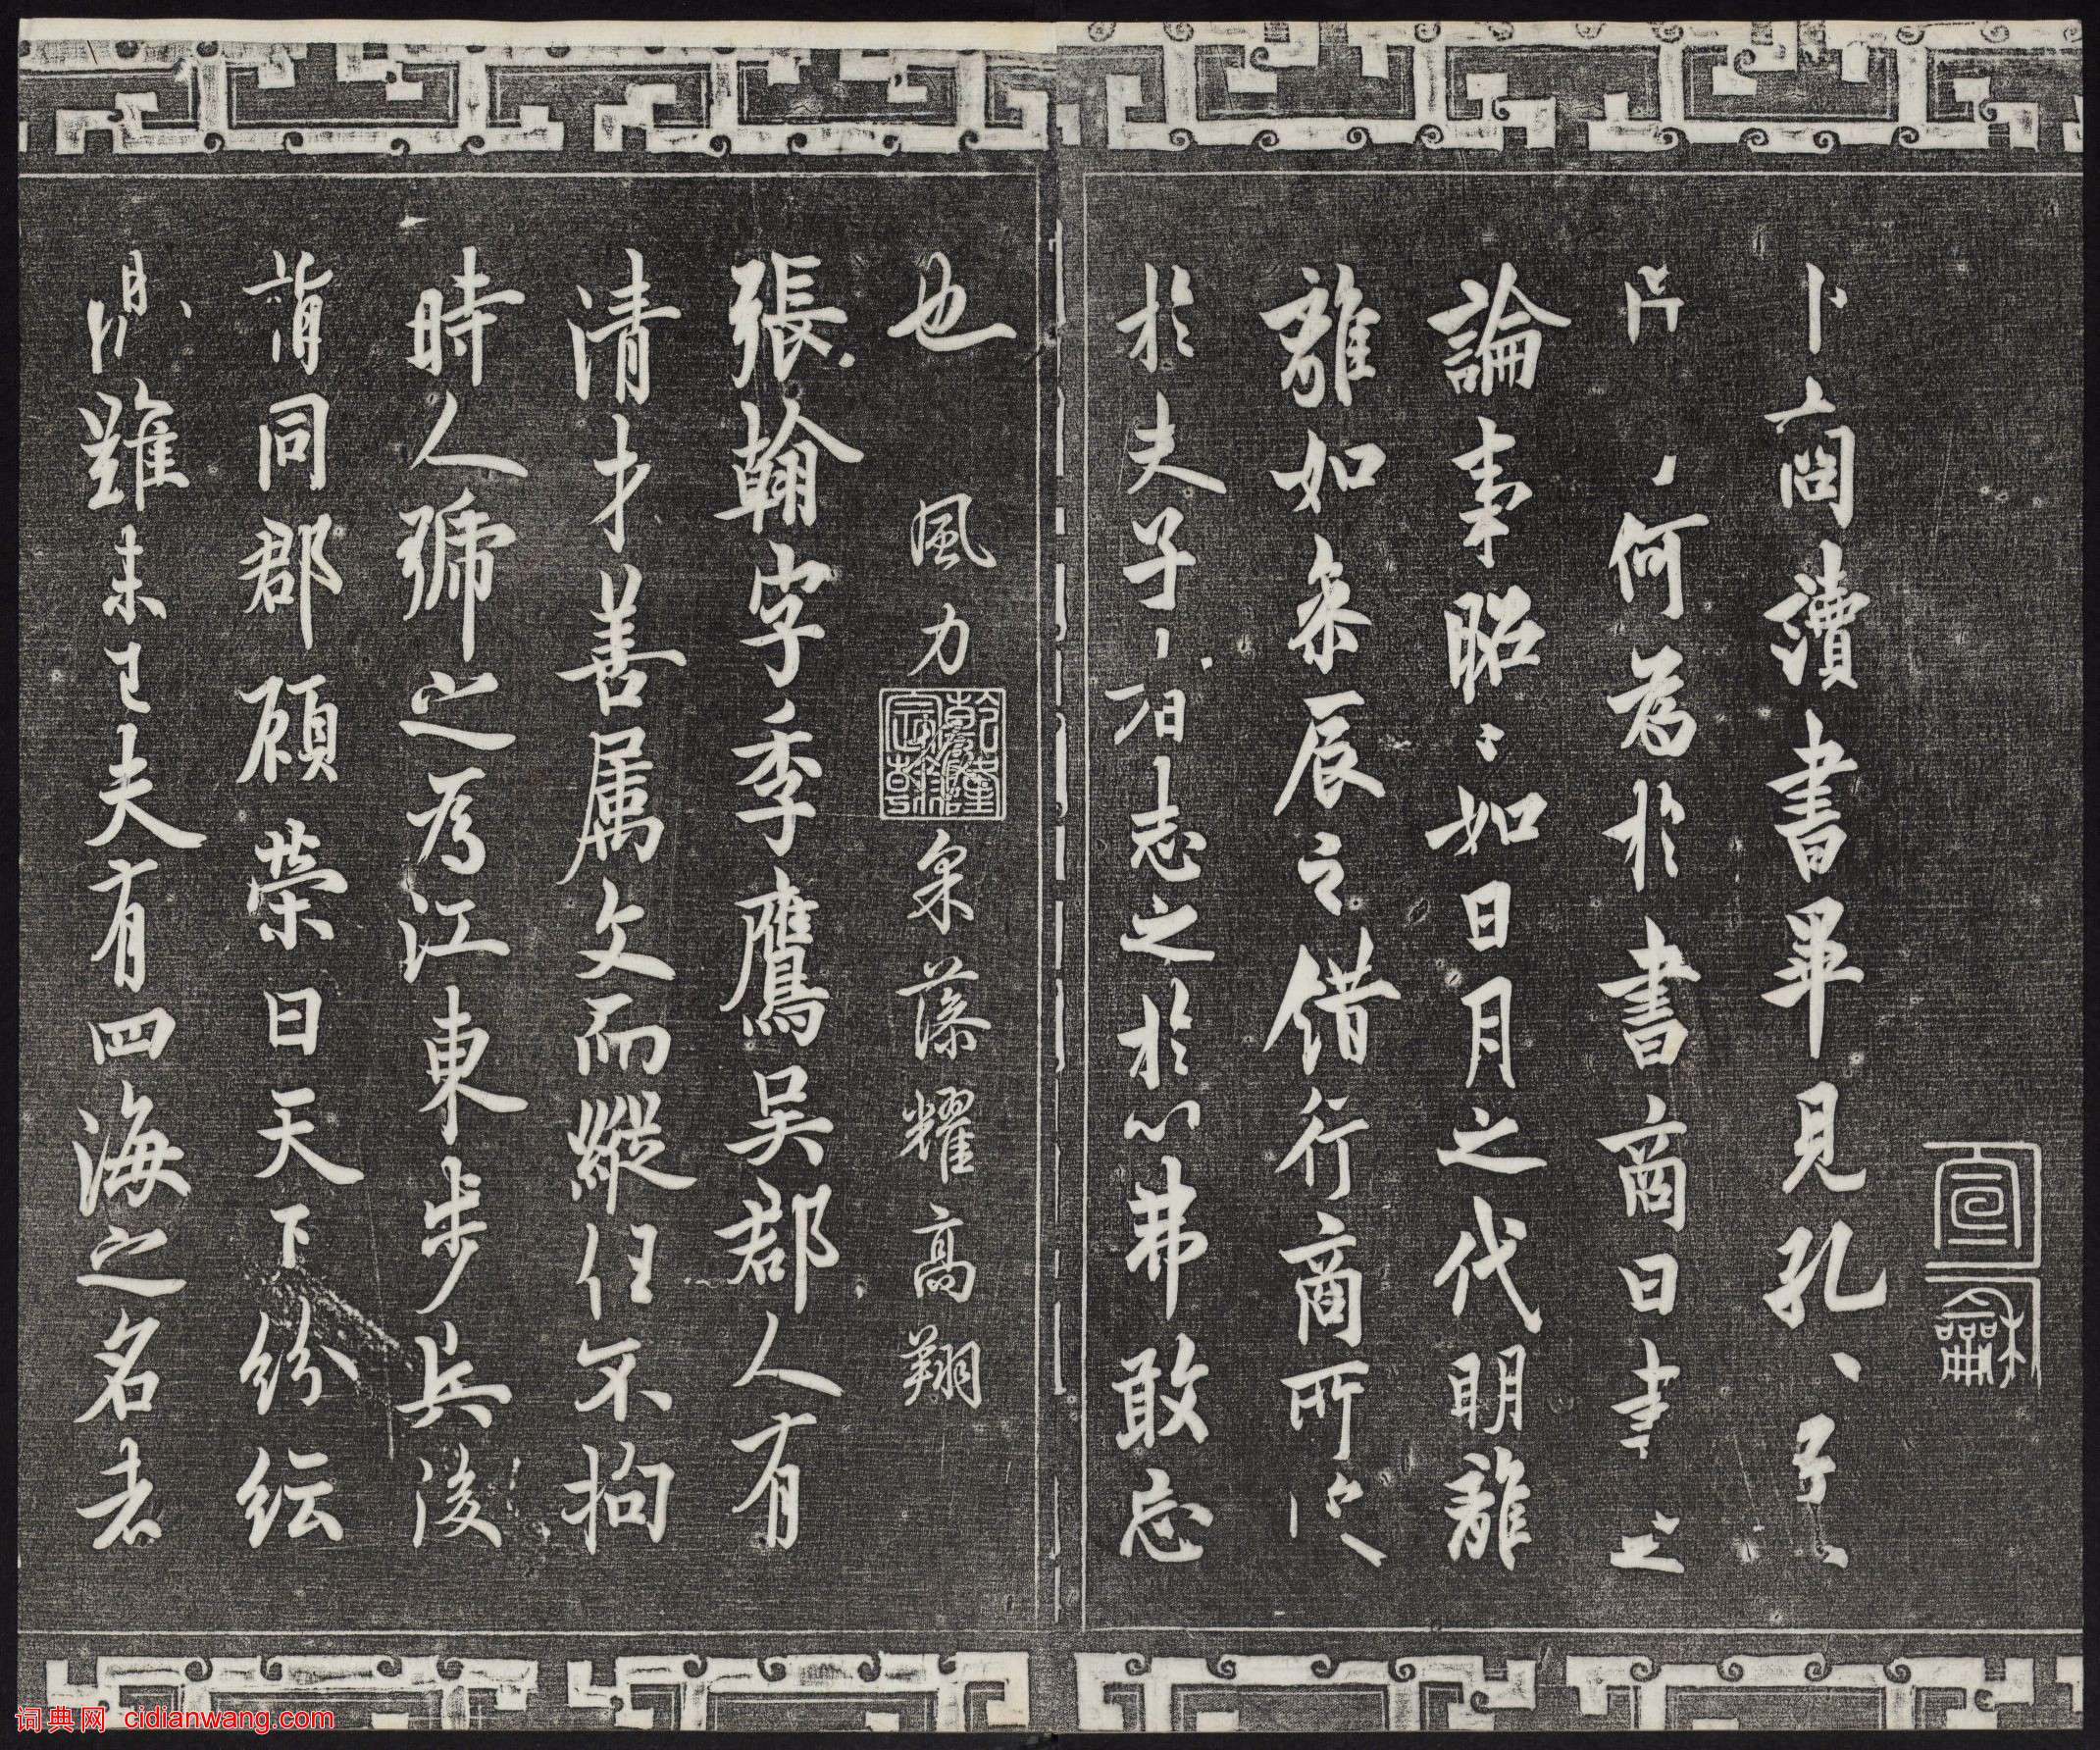 宣龢
卜商讀書畢見孔〻子〻
何為於書商曰書之
論事昭〻如日月之代明離
離如參辰之錯行商所受
於夫子者志之於心弗敢忘
也
風力
采藻耀高翔
張翰字季鷹吳郡人有
清才善属文而縱任不拘
時人號之為江東步兵後
謂同郡顧榮曰天下紛紜
禍難未已夫有四海之名者
词典网 cidianwang.com